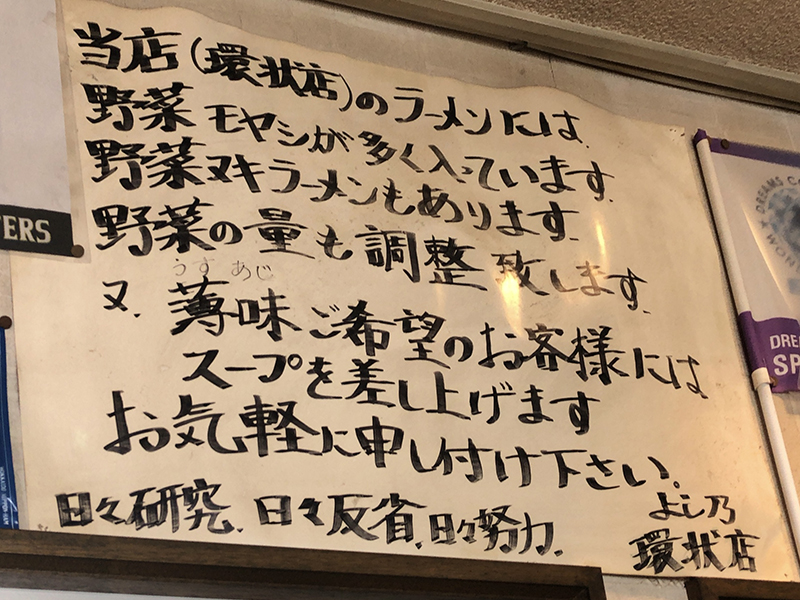 当店(環状店)のラーメンには
野菜 モヤシが多く入っています.
野菜ヌキラーメンもあります.
野菜の量も調整致します.
うす あじ
又、薄味ご希望のお客様には
スープを差し上げます
お気軽に申し付け下さい。
日々研究、日々反省、日々努力、
よし乃
環状店
TERS
DREAMS C
WON
DRE
SP